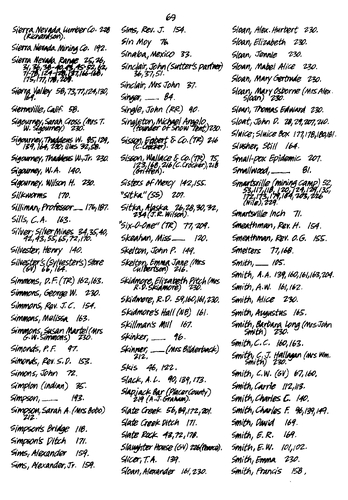 69
Sierra Nevada Lumber Co. 228
(Richardson).
Sierra Nevada Mining Co. 192.
Sierra Nevada Range
Sierra Valley 58, 73, 77, 124, 130,
164.
Sierraville, Calif. 58.
Sigourney, Sarah Cross (Mrs T.
W. Sigourney) 230.
Sigourney, Thaddeus W.
Sigourney, Thaddeus W., Jr. 230
Sigourney, W.A. 140.
Sigourney, Wilson H. 230.
Silkworms 170.
Silliman, Professor ___ 176, 187.
Sills, C.A. 163.
Silver; Silver Mines 34, 35, 40,
42, 43, 55, 65, 72, 170.
Silvester, Henry 140.
Silvester's (Sylvester's) Store
(69) 66, 164.
Simmons, D.F. (TR) 162, 163.
Simmons, George W. 230.
Simmons, Rev. J.C. 154.
Simmons, Melissa 163.
Simmons, Susan Martel (Mrs
G.W. Simmons) 230.
Simonds, P.F. 47.
Simonds, Rev. S.D. 153.
Simons, John 72.
Simpion (Indian) 35.
Simpson, ___ 143.
Simpson, Sarah A. (Mrs Bobo)
212.
Simpson's Bridge 118.
Simpson's Ditch 171.
Sims, Alexander 159.
Sims, Alexander, Jr. 159.
Sims, Rev. J. 154.
Sin Moy 76.
Sinaloa, Mexico 33.
Sinclair, John (Sutter's partner)
36, 37, 51.
Sinclair, Mrs John 37.
Singer, ___ 84.
Single, John (RR) 90.
Singleton, Michael Angelo
(founder of Snow Tent) 230.
Sisson, Egbert & Co. (TR) 216
(C. Crocker).
Sisson, Wallace & Co. (TR) 75,
123, 168, 216 (C. Crocker), 218
(Griffen).
Sisters of Mercy 142, 155.
"Sitka" (SS) 207.
Sitka, Alaska 26, 28, 30, 92,
234 (J.R. Wilson).
"Six-O-One" (TR) 77, 209.
Skeahan, Miss ___ 120.
Skelton, John P. 149.
Skelton, Emma Jane (Mrs
Culbertson) 216.
Skidmore, Elizabeth Pitch (Mrs
R.D. Skidmore) 230.
Skidmore, R.D. 59, 160, 161, 230.
Skidmore's Hall (NB) 161.
Skillman's Mill 167.
Skinker, ___ 96.
Skinner, ___ (Mrs Bilderback)
212.
Skis 46, 122.
Slack, A.L. 90, 139, 173.
Slapjack Bar (Placer County)
219 (A.J. Graham).
Slate Creek 56, 89, 172, 201.
Slate Creek Ditch 171.
Slate Rock 48, 72, 178.
Slaughter House (GV) 226 (Prince).
Slicer, T.A. 139.
Sloan, Alexander 161, 230.
Sloan, Alex. Herbert 230.
Sloan, Elizabeth 230.
Sloan, Jennie 230.
Sloan, Mabel Alice 230.
Sloan, Mary Gertrude 230.
Sloan, Mary Osborne (Mrs Alex
Sloan) 230.
Sloan, Thomas Edward 230.
Sloat, John D. 28, 29, 207, 210.
Sluice; Sluice Box 177, 178, 180, 181.
Slusher, Still 164.
Small-pox Epidemic 207.
Smallwood, ___ 81.
Smartsville (mining camp)
Smartsville Inn 71.
Smeathman, Rev. H. 154.
Smeathman, Rev. O.G. 155.
Smelters 77, 168.
Smith, ___ 105.
Smith, A.A. 139, 160, 161, 163, 204.
Smith, A.W. 161, 162.
Smith, Alice 230.
Smith, Augustus 165.
Smith, Barbara Long (Mrs John
Smith) 230.
Smith, C.C. 160, 163.
Smith, C.J. Hallagan (Mrs Wm.
Smith) 230.
Smith, C.W. (GV) 67, 160,
Smith, Carrie 112, 113.
Smith, Charles C. 140.
Smith, Charles F. 96, 139, 149.
Smith, David 169.
Smith, E.R. 169.
Smith, E.W. 101, 102.
Smith, Emma 230.
Smith, Francis 158,